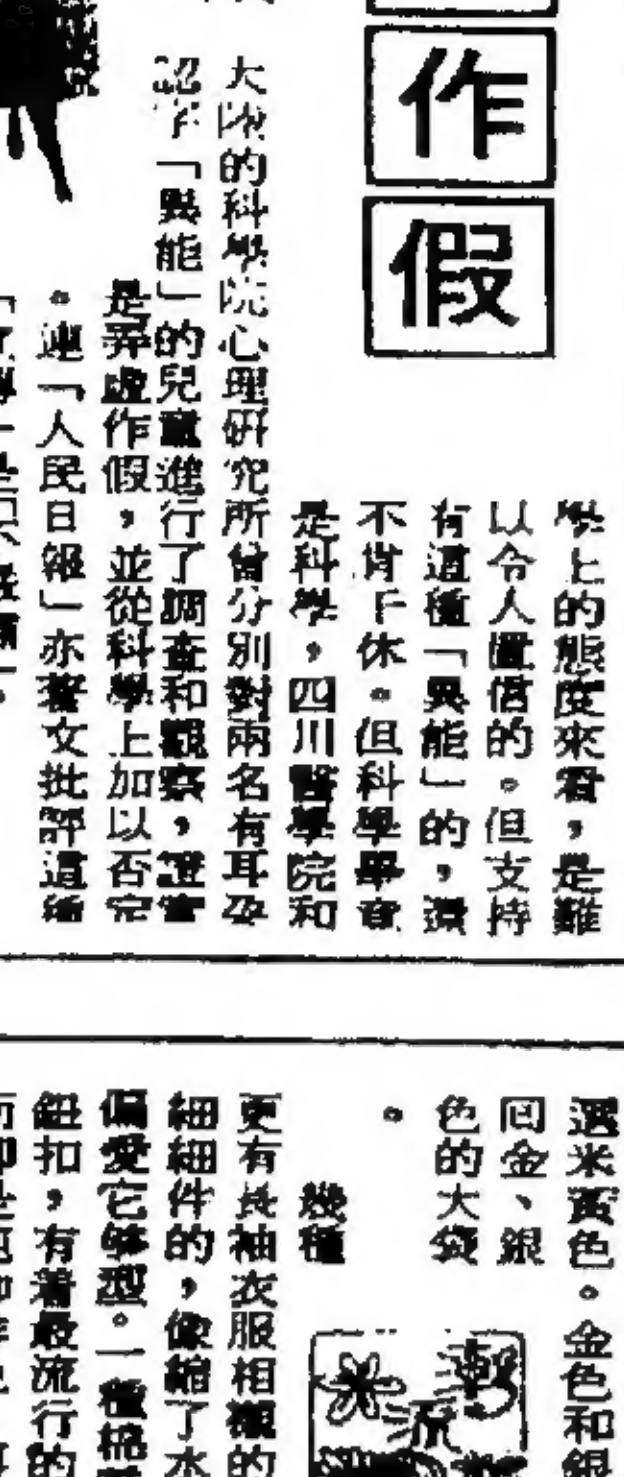 作
假
學上的態度來看，是難
以令人置信的。但支持
有這種「異能」的，還
不肯干休。但科學畢竟
是科學，四川醫學院和
大陸的科學院心理研究所曾分別對兩名有耳朶
認字「異能」的兒童進行了調查和觀察，證實
是弄虛作假，並從科學上加以否定
。連「人民日報」亦著文批評這種
選米黃色。金色和銀
回金、銀
色的大袋
。
幾種
更有長袖衣服相襯的
細細件的，像縮了水
偏愛它夠型。一種棉
鈕扣，有着最流行的